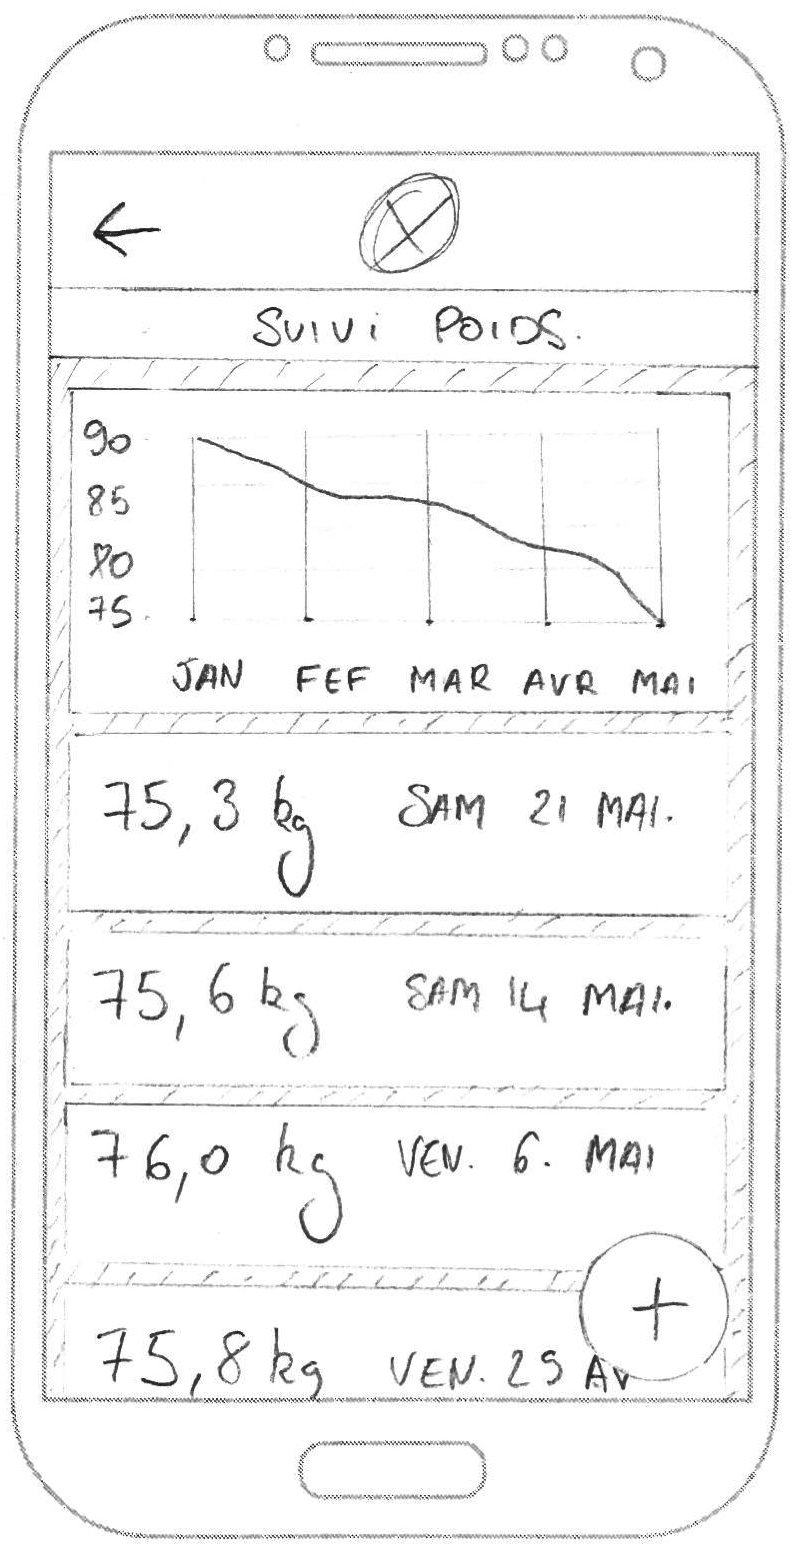 SUIVI POIDS.
90
85
80
75
JAN FEF MAR AVR MAI
75,3 kg SAM 21 MAI.
75,6 kg SAM 14 MAI.
76,0 kg VEN. 6. MAI
+
75,8 kg VEN. 29 AV